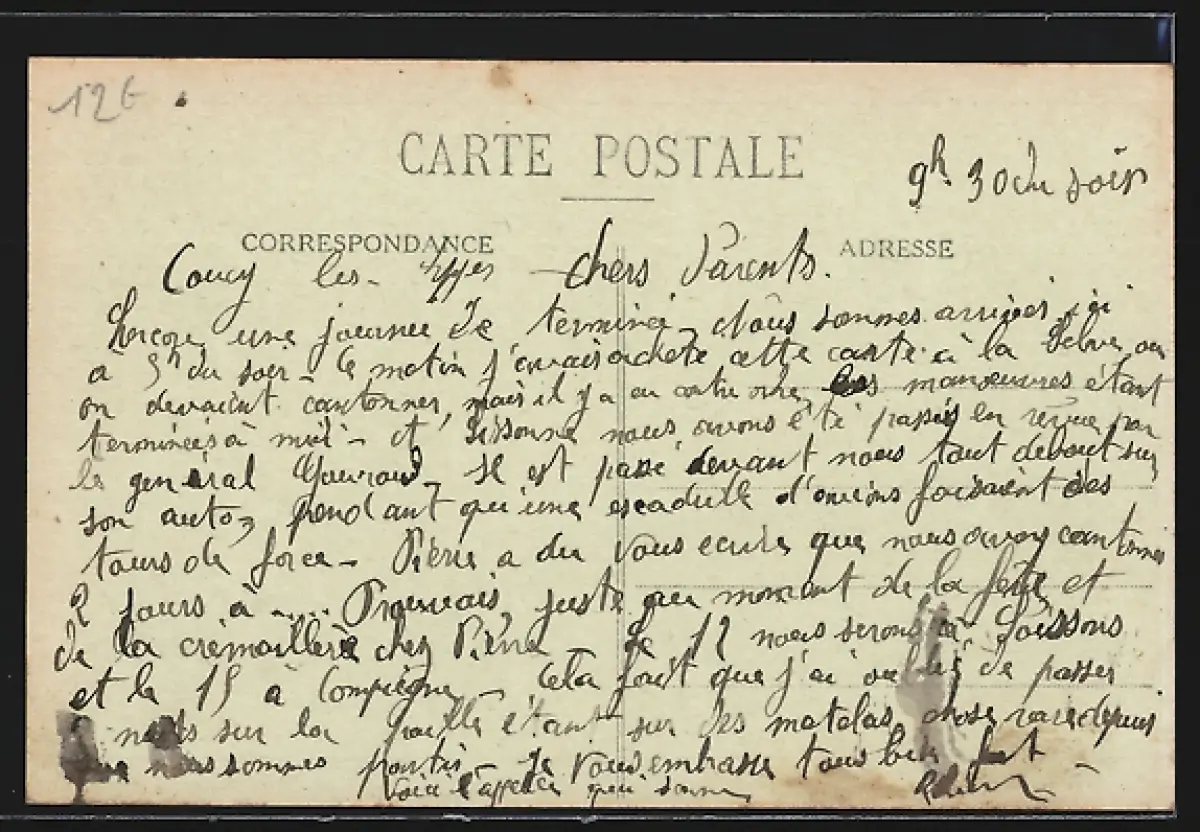 12€
CARTE POSTALE
9h 30 du soir
CORRESPONDANCE
ADRESSE
Coucy les- Eppes - Chers Parents.
Encore une journée de terminé - Nous sommes arrivés ici
à 5h du soir - Ce matin j'avais acheté cette carte à la Selve où
on devaient cantonner, mais il y a eu contre ordre, les manœuvres étant
terminées à midi - et Sissonne nous avons été passés en revue par
le général Gouraud - Il est passé devant nous tout debout sur
son auto, pendant qu'une escadrille d'avions faisaient des
tours de force - Pierre a du vous ecrire que nous avons cantonnés
2 jours à Prouvais, juste au moment de la fête et
de la crémaillère chez Pierre - le 12 nous serons à Soissons
et le 15 à Compiègne - Cela fait que j'ai oublié de passer
nuits sur la paille étant sur des matelas, chose rare depuis
que nous sommes partis - Je vous embrasse tous bien fort
voici l'appel qui sonne